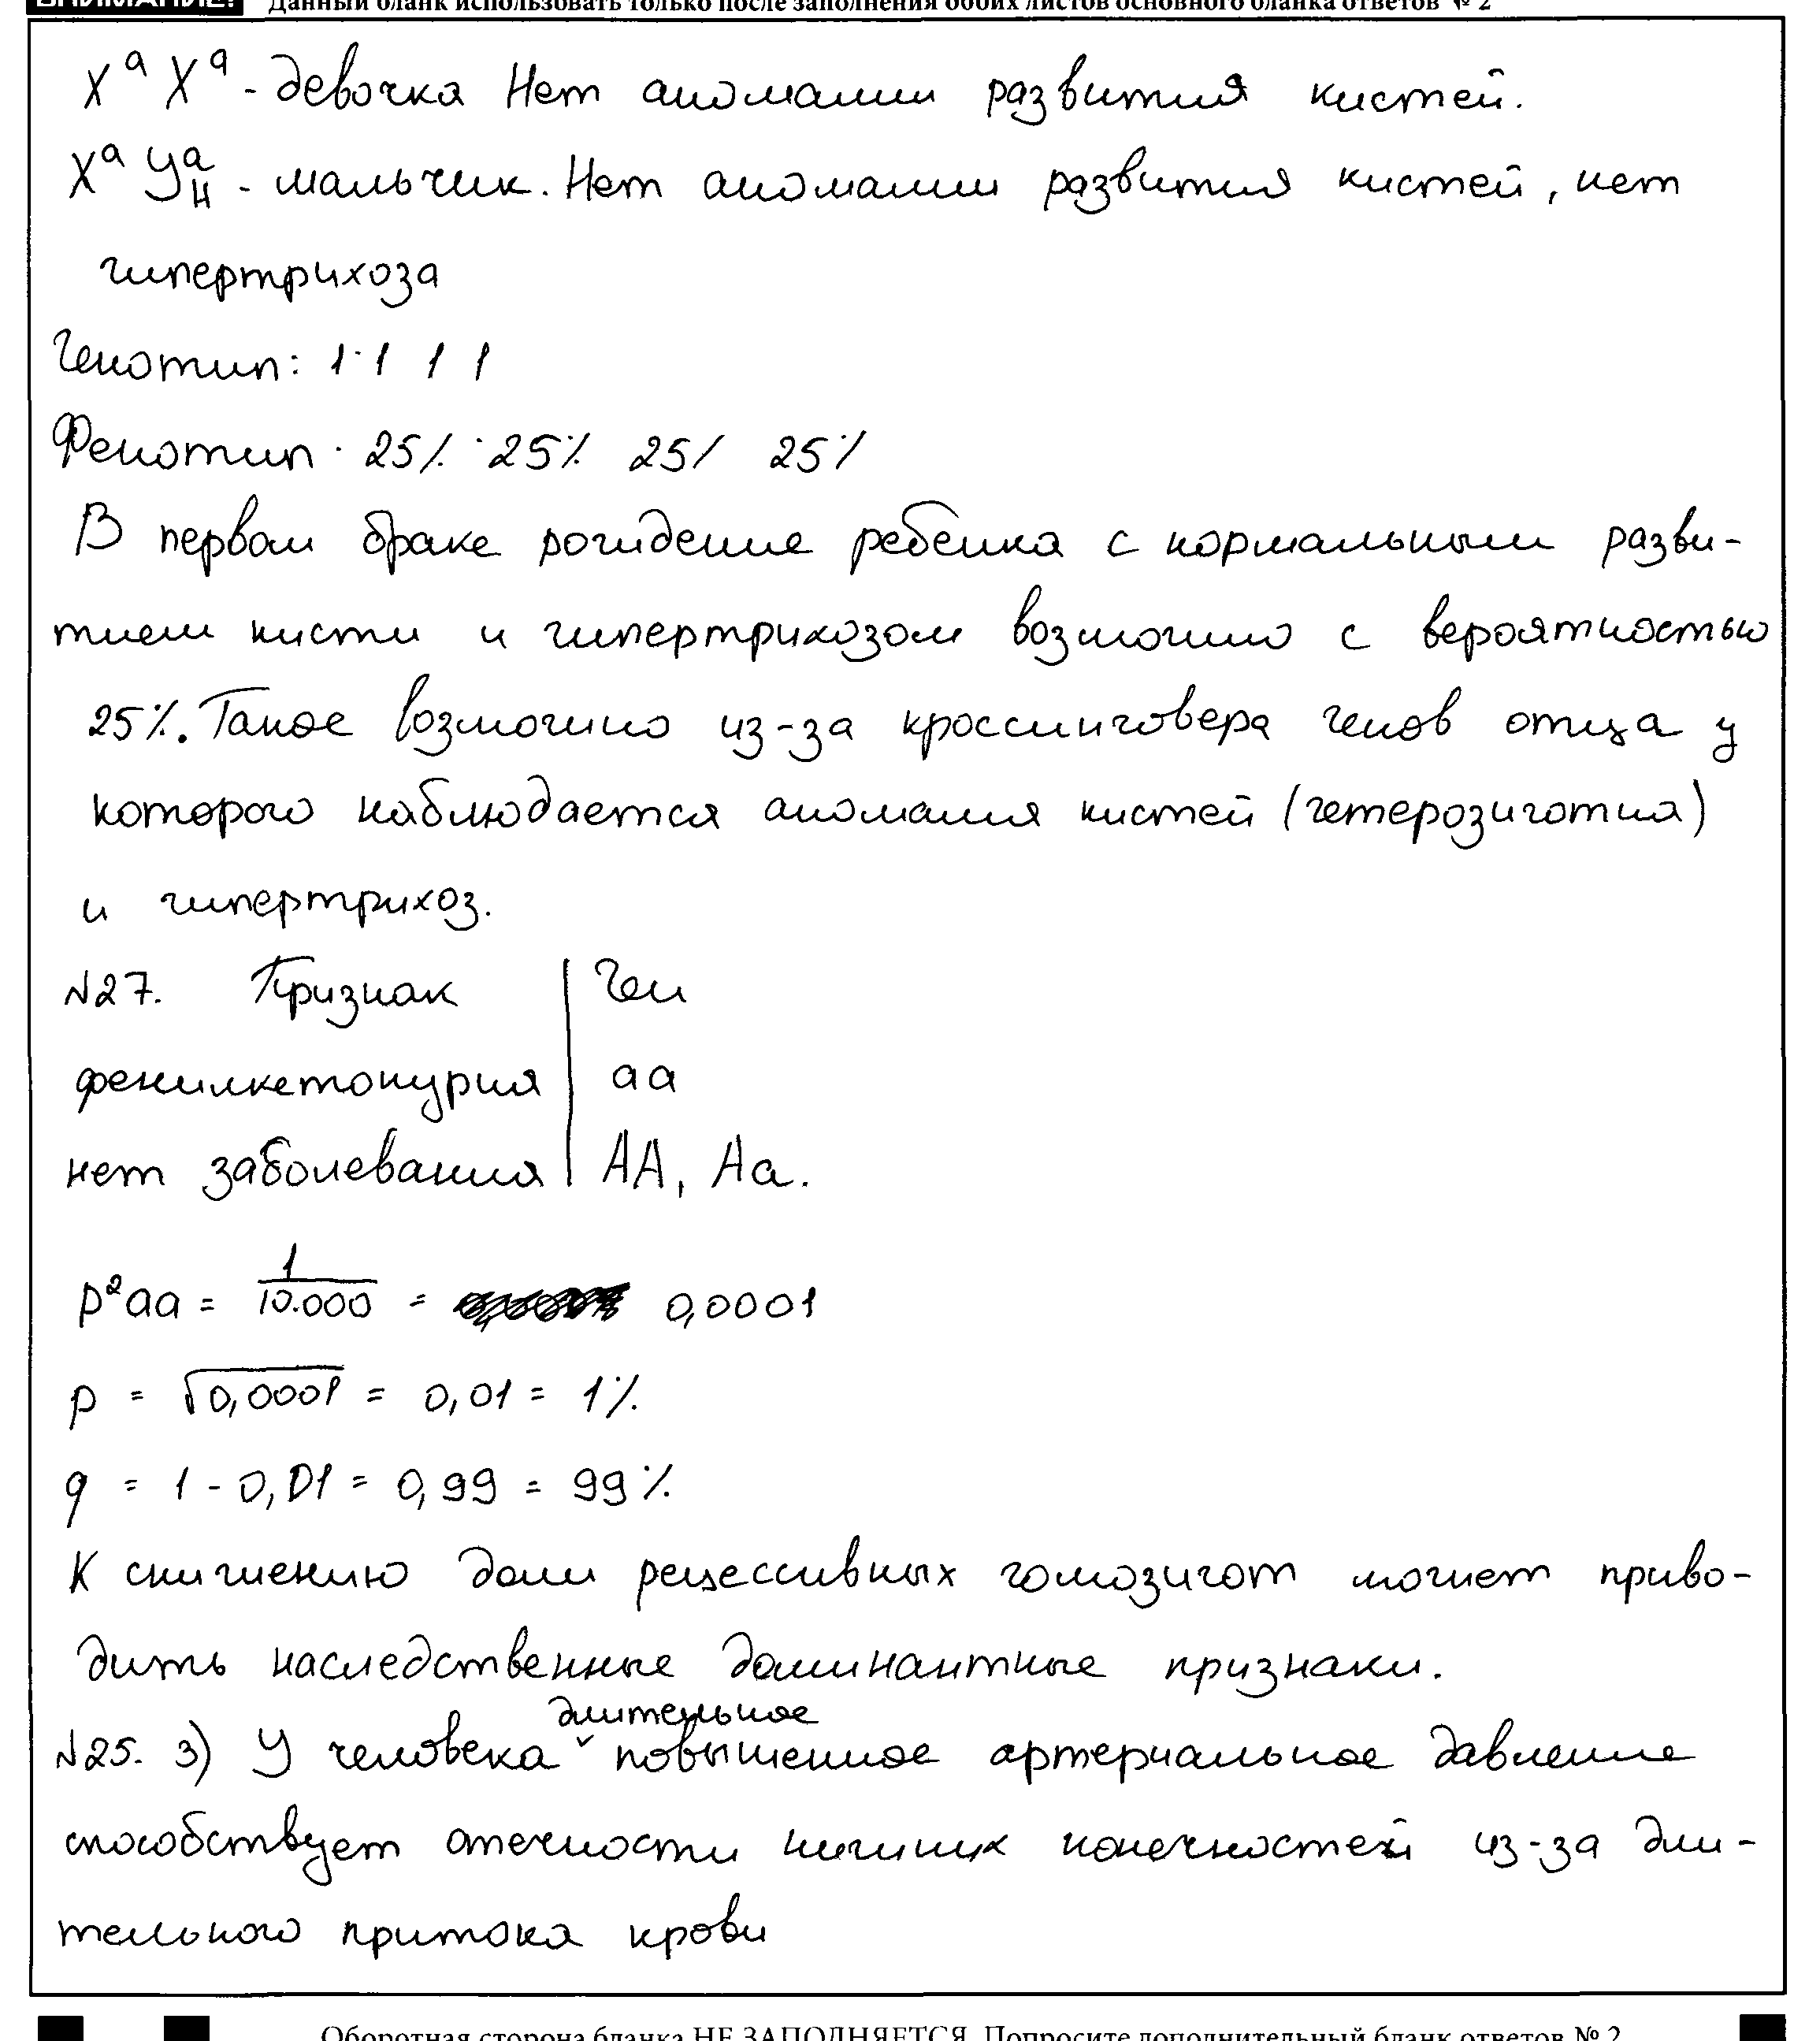 ВНИМАНИЕ! Данный бланк использовать только после заполнения обоих листов основного бланка ответов № 2
XᵃXᵃ - девочка Нет аномалии развития кистей.
XᵃYᵃ_H - мальчик. Нет аномалии развития кистей, нет
гипертрихоза
Генотип: 1:1 1 1
Фенотип: 25%:25% 25% 25%
В первом браке рождение ребенка с нормальным разви-
тием кисти и гипертрихозом возможно с вероятностью
25%. Такое возможно из-за кроссинговера генов отца у
которого наблюдается аномалия кистей (гетерозиготна)
и гипертрихоз.
№27. Признак | Ген
фенилкетонурия | аа
нет заболевания | АА, Аа.
p²aa = 1/10.000 = 0,0001
p = √0,0001 = 0,01 = 1%
q = 1 - 0,01 = 0,99 = 99%
К снижению доли рецессивных гомозигот может приво-
дить наследственные доминантные признаки.
№25. 3) У человека длительное повышенное артериальное давление
способствует отечности нижних конечностей из-за дли-
тельного притока крови
Оборотная сторона бланка НЕ ЗАПОЛНЯЕТСЯ. Попросите дополнительный бланк ответов № 2